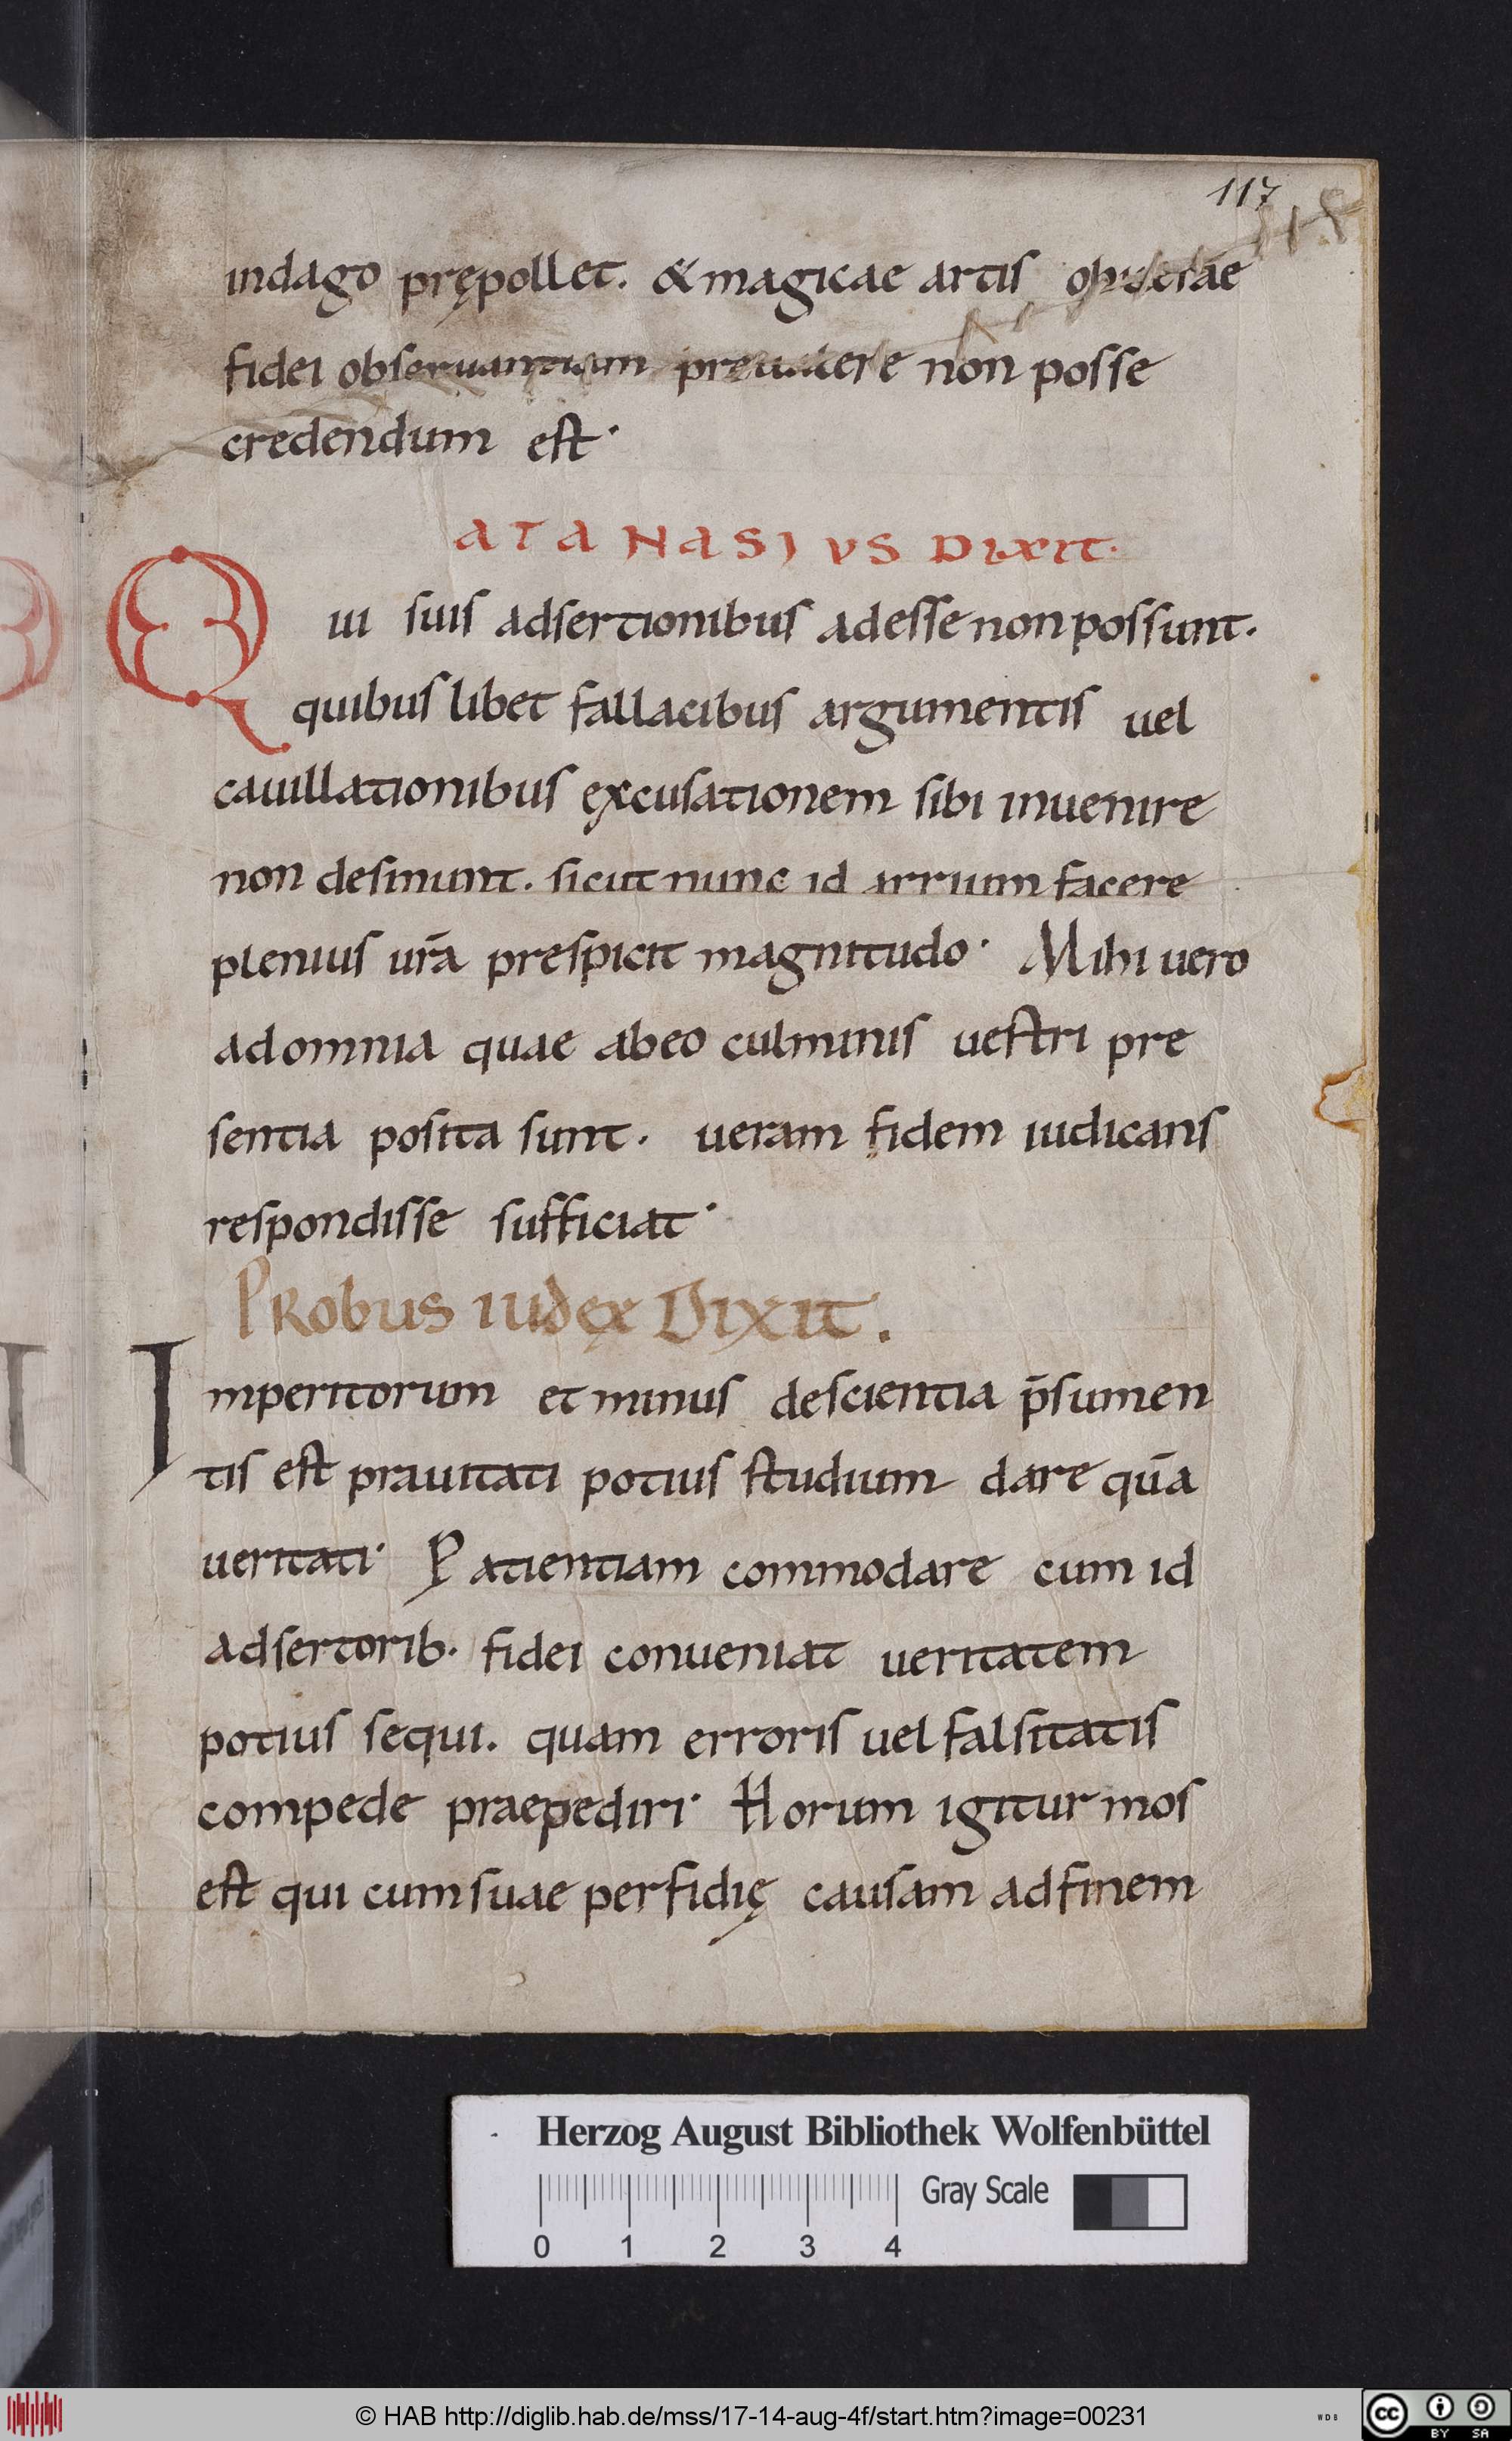 117
118
indago prępollet. & magicae artis
fidei obseruantium preualere non posse
credendum est·
ATANASIVS DIXIT·
Qui suis adsertionibus adesse non possunt.
quibus libet fallacibus argumentis uel
cauillationibus excusationem sibi inuenire
non desinunt. sicut nunc id arrium facere
plenius ur̄a prespicit magnitudo· Mihi uero
ad omnia quae ab eo culminis uestri pre
sentia posita sunt. ueram fidem iudicans
respondisse sufficiat·
PRobus iudex Dixit.
Imperitorum et minus de scientia p̄sumen
tis est prauitati potius studium dare quā
ueritati· Patientiam commodare cum id
adsertorib. fidei conueniat ueritatem
potius sequi. quam erroris uel falsitatis
compede praepediri· Horum igitur mos
est qui cum suae perfidię causam ad finem
Herzog August Bibliothek Wolfenbüttel
Gray Scale
0 1 2 3 4
© HAB http://diglib.hab.de/mss/17-14-aug-4f/start.htm?image=00231
WDB
cc BY SA